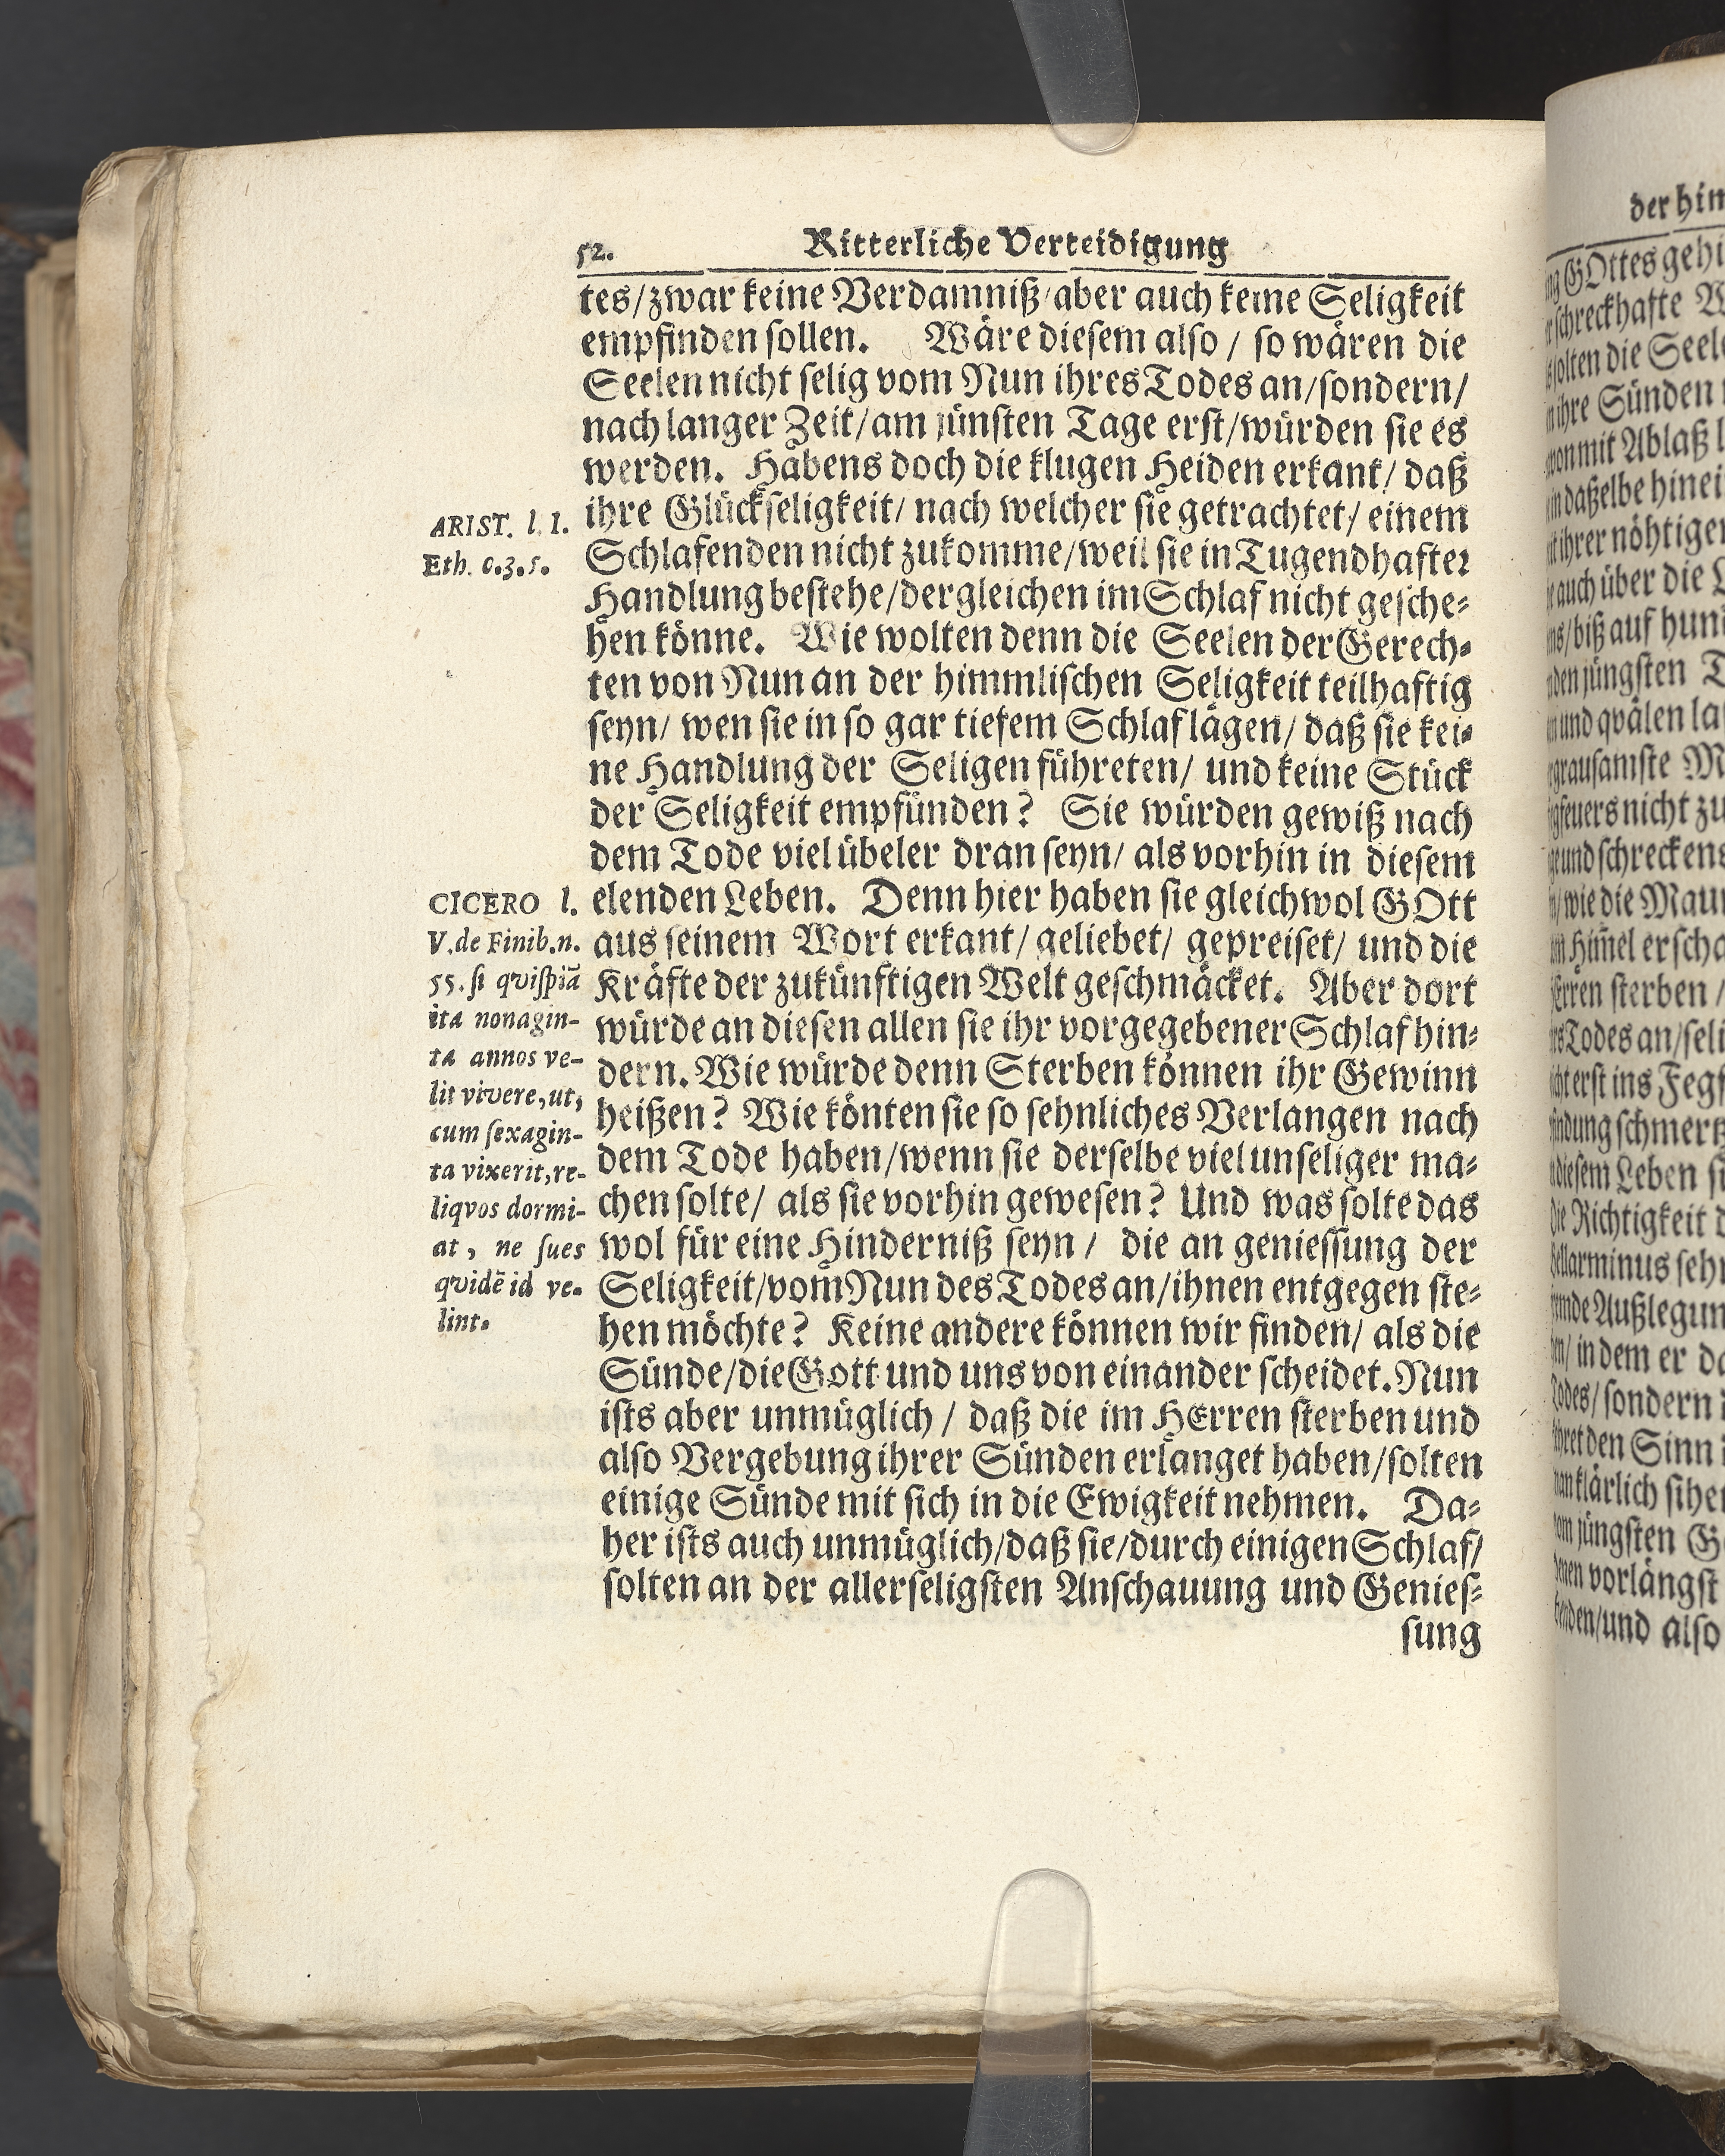 52. Ritterliche Verteidigung
tes/zwar keine Verdamniß/aber auch keine Seligkeit
empfinden sollen. Wäre diesem also / so wären die
Seelen nicht selig vom Nun ihres Todes an/sondern/
nach langer Zeit/am jünsten Tage erst/würden sie es
werden. Habens doch die klugen Heiden erkant/ daß
ihre Glückseligkeit/ nach welcher sie getrachtet/ einem
Schlafenden nicht zukomme/weil sie in Tugendhafter
Handlung bestehe/dergleichen im Schlaf nicht gesche-
hen könne. Wie wolten denn die Seelen der Gerech-
ten von Nun an der himmlischen Seligkeit teilhaftig
seyn/ wen sie in so gar tiefem Schlaf lägen/ daß sie kei-
ne Handlung der Seligen führeten/ und keine Stück
der Seligkeit empfünden? Sie würden gewiß nach
dem Tode viel übeler dran seyn/ als vorhin in diesem
elenden Leben. Denn hier haben sie gleichwol GOtt
aus seinem Wort erkant/ geliebet/ gepreiset/ und die
Kräfte der zukünftigen Welt geschmäcket. Aber dort
würde an diesen allen sie ihr vorgegebener Schlaf hin-
dern. Wie würde denn Sterben können ihr Gewinn
heißen? Wie könten sie so sehnliches Verlangen nach
dem Tode haben/wenn sie derselbe viel unseliger ma-
chen solte/ als sie vorhin gewesen? Und was solte das
wol für eine Hinderniß seyn / die an geniessung der
Seligkeit/vom Nun des Todes an/ihnen entgegen ste-
hen möchte? Keine andere können wir finden/ als die
Sünde/die Gott und uns von einander scheidet. Nun
ists aber unmüglich / daß die im HErren sterben und
also Vergebung ihrer Sünden erlanget haben/solten
einige Sünde mit sich in die Ewigkeit nehmen. Da-
her ists auch unmüglich/daß sie/durch einigen Schlaf/
solten an der allerseligsten Anschauung und Genies-
sung
ARIST. l. 1.
Eth. c.3.5.
CICERO l.
V. de Finib. n.
55. si qvispiā
ita nonagin-
ta annos ve-
lit vivere, ut,
cum sexagin-
ta vixerit, re-
liqvos dormi-
at, ne sues
qvidē id ve-
lint.
der him
GOttes gehi
schreckhafte
solten die Seel
ihre Sünden
mit Ablaß
daßelbe hinei
ihrer nöhtige
auch über die
/biß auf hun
den jüngsten
und qvälen la
grausamste
feuers nicht zu
und schrecken
/wie die Mau
Him̃el erscha
sterben /
Todes an/seli
erst ins Feg
schmer
diesem Leben
die Richtigkeit
Bellarminus seh
Außlegun
/ in dem er da
Todes/ sondern
den Sinn
klärlich sihe
jüngsten
vorlängst
/und also